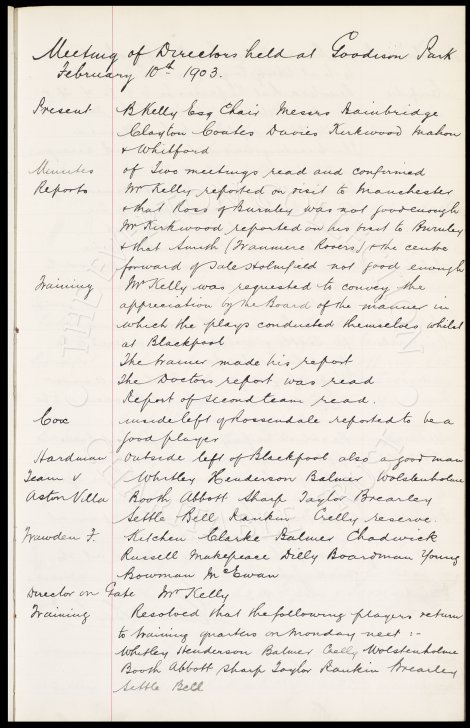 Meeting of Directors held at Goodison Park
February 10th 1903.
Present B Kelly Esq Chair Messrs Bainbridge
Clayton Coates Davies Kirkwood Mahon
& Whitford
Minutes of Two meetings read and confirmed
Reports Mr Kelly reported on visit to Manchester
& that Ross of Burnley was not good enough
Mr Kirkwood reported on his visit to Burnley
& that Smith (Tranmere Rovers) & the centre
forward of Sale Holmfield not good enough
Training Mr Kelly was requested to convey the
appreciation by the Board of the manner in
which the plays conducted themselves whilst
at Blackpool
The trainer made his report
The Doctors report was read
Report of second team read.
Cox inside left of Rossendale reported to be a
good player
Hardman outside left of Blackpool also a good man
Team v Whitley Henderson Balmer Wolstenholme
Aston Villa Booth Abbott Sharp Taylor Brearley
Settle Bell Rankin Crelly reserve.
Trawden F. Kitchen Clarke Balmer Chadwick
Russell Makepeace Dilly Boardman Young
Bowman McEwan
Director on Gate Mr Kelly
Training Resolved that the following players return
to training quarters on Monday next :-
Whitley Henderson Balmer Crelly Wolstenholme
Booth Abbott Sharp Taylor Rankin Brearley
Settle Bell